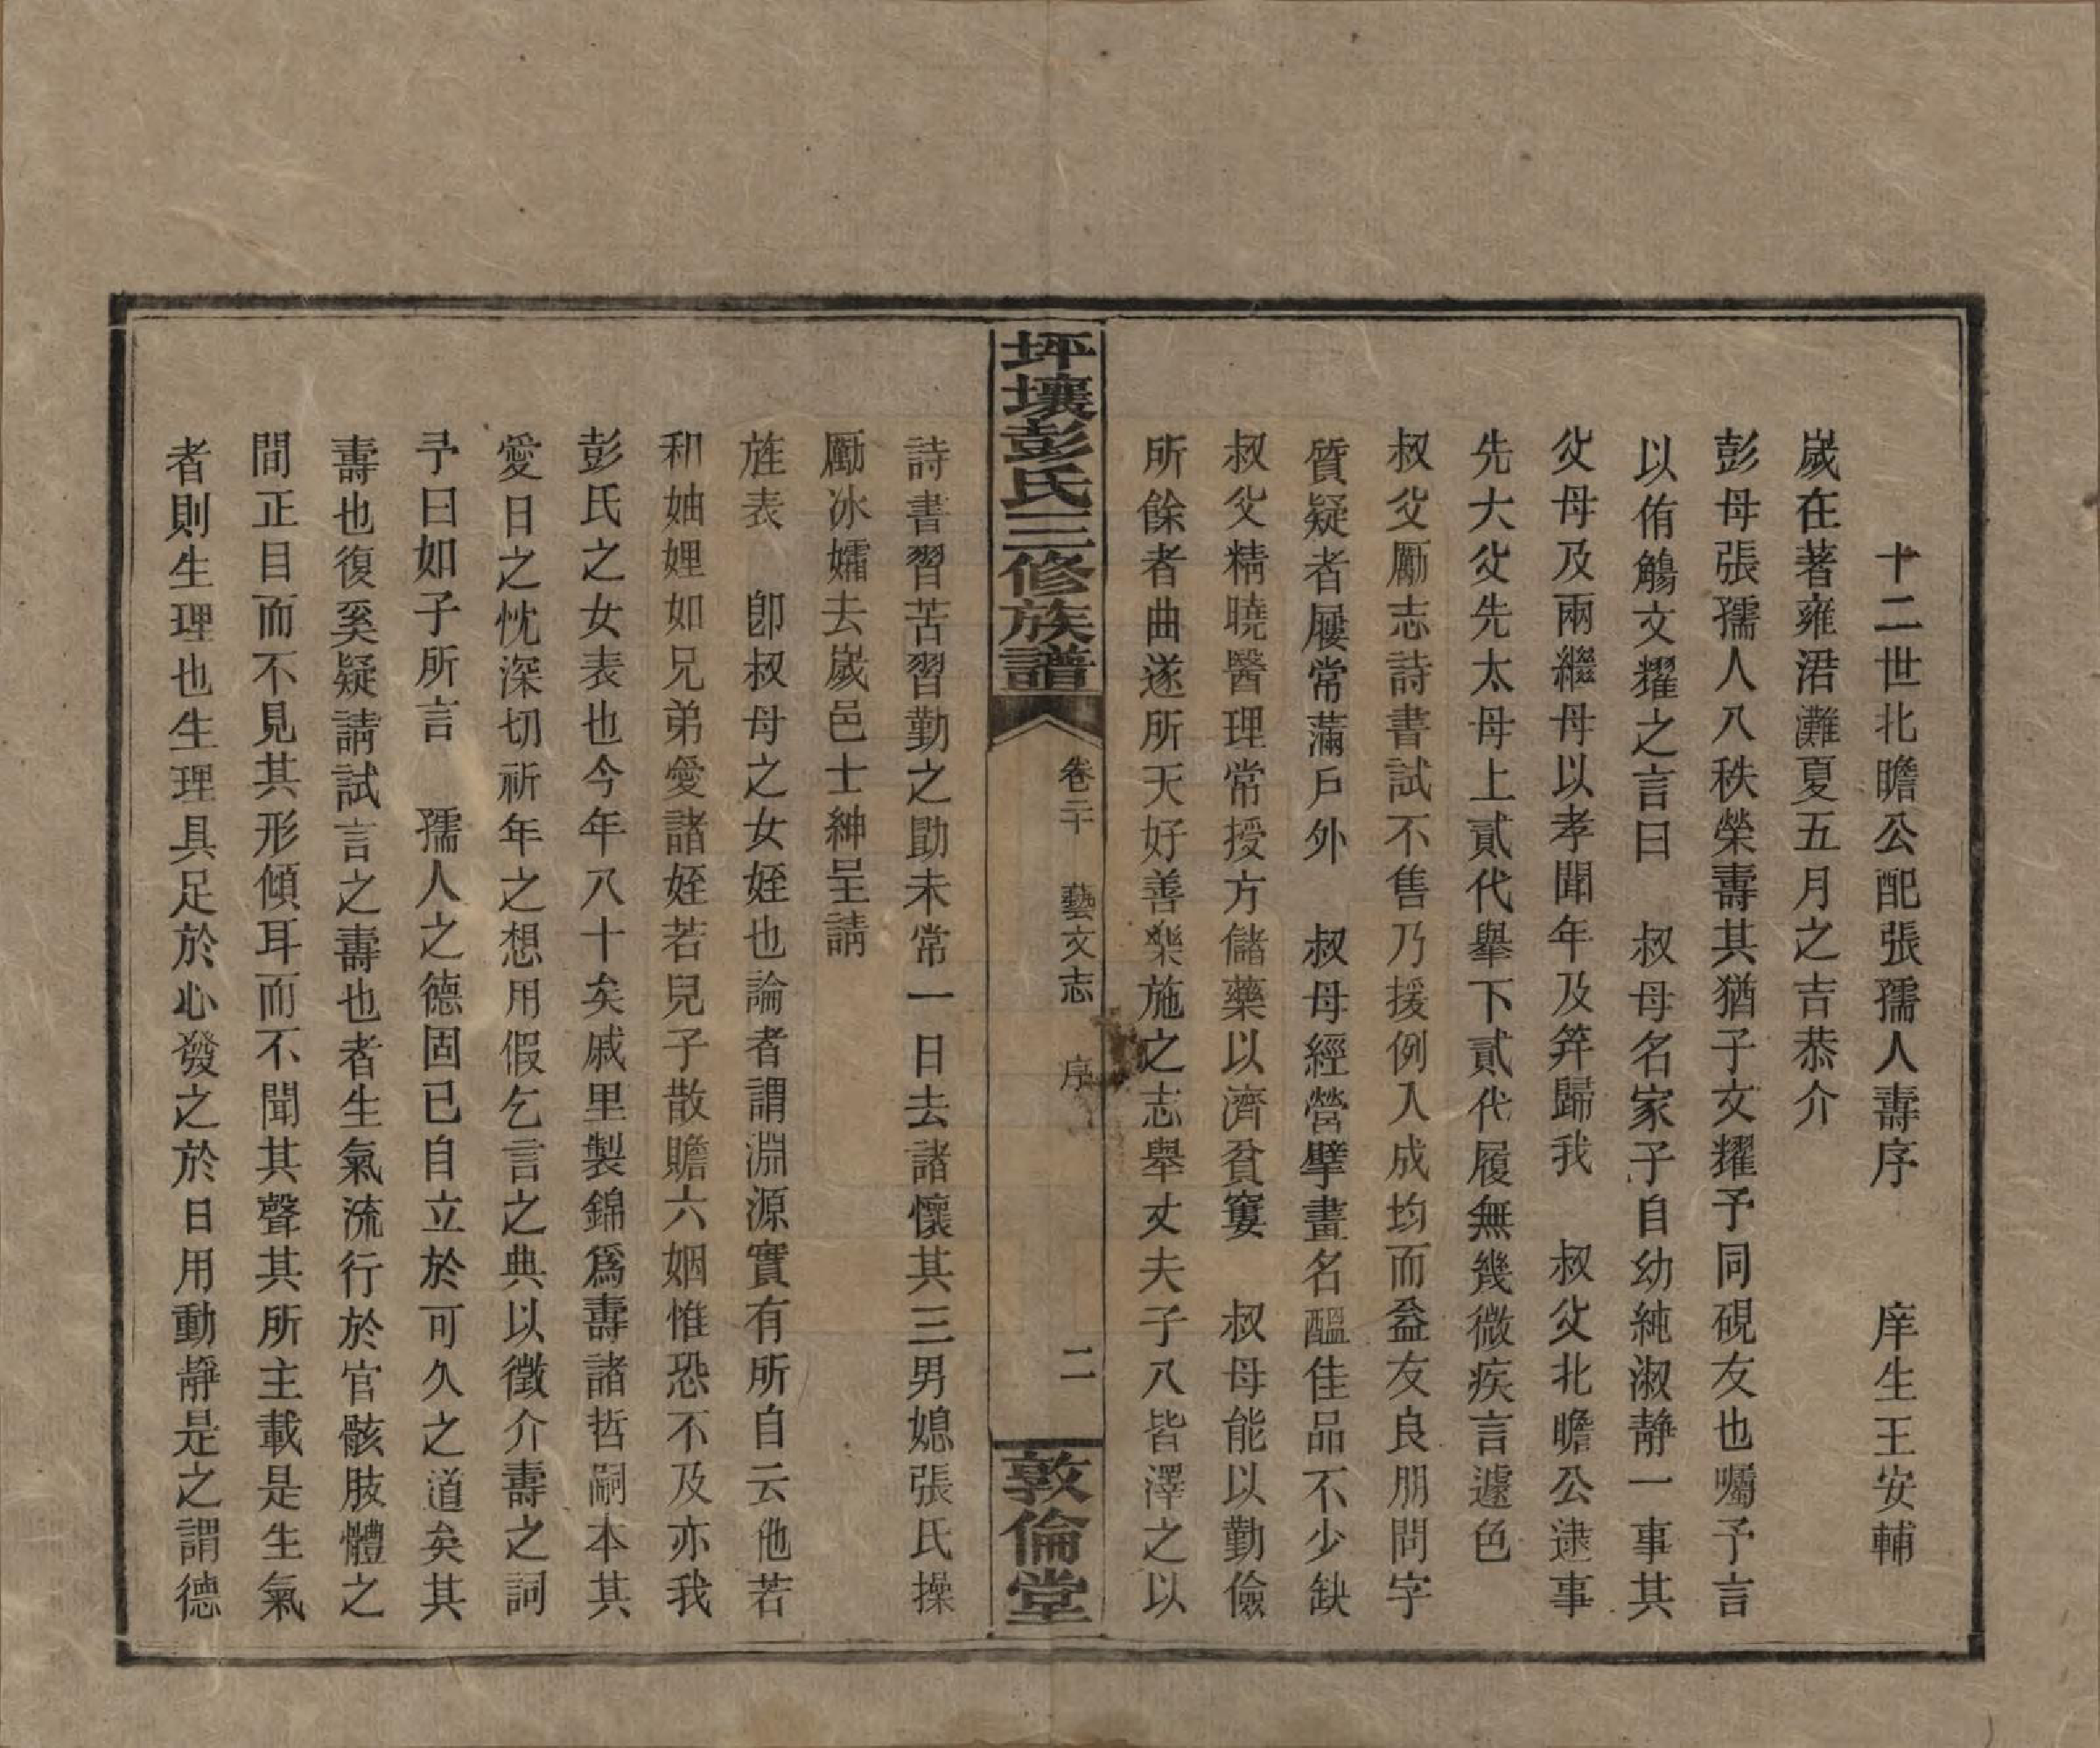 十二世北瞻公配張孺人壽序　　庠生王安輔
嵗在著雍涒灘夏五月之吉恭介
彭母張孺人八秩榮壽其猶子文耀予同硯友也囑予言
以侑觴文耀之言曰　叔母名家子自幼純淑靜一事其
父母及兩繼母以孝聞年及笄歸我　叔父北瞻公逮事
先大父先太母上貳代舉下貳代履無幾微疾言遽色
叔父勵志詩書試不售乃援例入成均而益友良朋問字
質疑者屨常滿戶外　叔母經營擘畫名醞佳品不少缺
叔父精曉醫理常授方儲藥以濟貧窶　叔母能以勤儉
所餘者曲遂所天好善樂施之志舉丈夫子八皆澤之以
坪壤彭氏三修族譜
卷二十　藝文志　序　二
敦倫堂
詩書習苦習勤之勖未常一日去諸懷其三男媳張氏操
勵冰孀去嵗邑士紳呈請
旌表　卽叔母之女姪也論者謂淵源實有所自云他若
和妯娌如兄弟愛諸姪若兒子散贍六姻惟恐不及亦我
彭氏之女表也今年八十矣戚里製錦爲壽諸哲嗣本其
愛日之忱深切祈年之想用假乞言之典以徵介壽之詞
予曰如子所言　孺人之德固已自立於可久之道矣其
壽也復奚疑請試言之壽也者生氣流行於官骸肢體之
間正目而不見其形傾耳而不聞其聲其所主載是生氣
者則生理也生理具足於心發之於日用動靜是之謂德